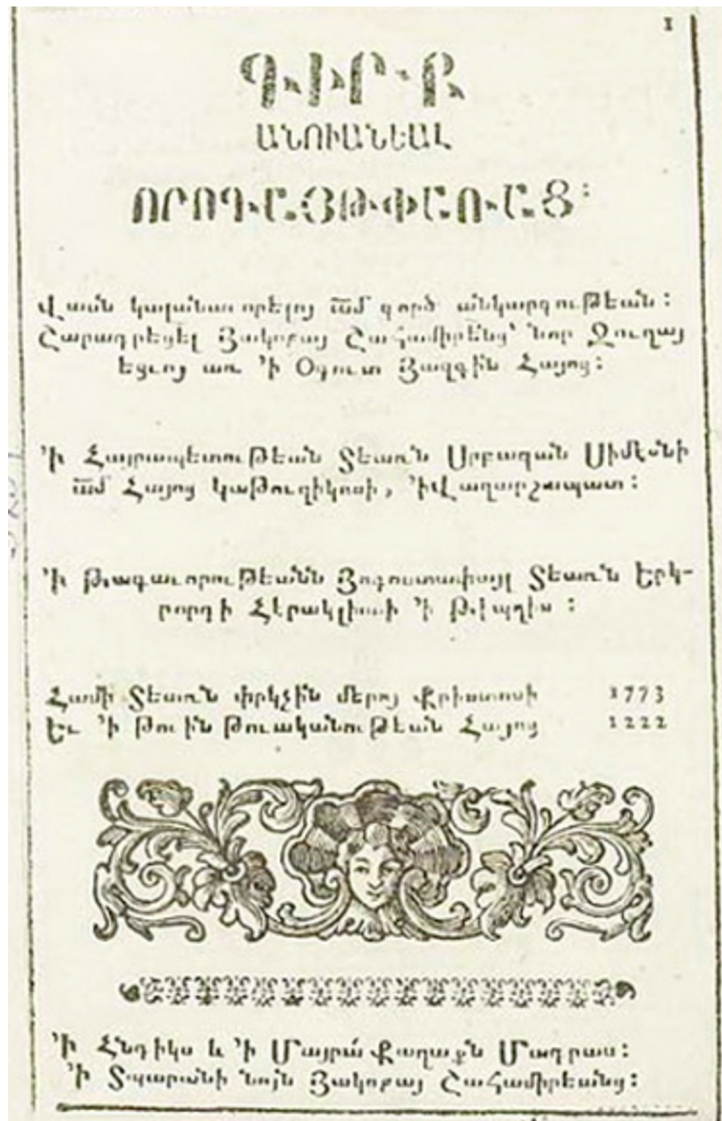 1
ԳԻՐՔ
ԱՆՈՒԱՆԵԱԼ
ՈՐՈԳԱՅԹՓԱՌԱՑ։
Վասն կալանաւորելոյ ամ գործ անկարգութեան։
Շարադրեցել Յակոբայ Շահամիրէնց՝ նոր Ջուղայ
եցւոյ առ ՚ի Օգուտ Յազգին Հայոց։
՚ի Հայրապետութեան Տեառն Սրբազան Սիմէօնի
ամ Հայոց կաթուղիկոսի, ՚իՎաղարշապատ։
՚ի թագաւորութեանն Յօգոստափայլ Տեառն Երկ-
րորդի Հերակլիոսի ՚ի Թիպղիս։
Համի Տեառն փրկչին մերոյ Քրիստոսի 1773
Եւ ՚ի Թուին թուականութեան Հայոց 1222
՚ի Հնդիկս և ՚ի Մայրա՛ Քաղաքն Մադրաս։
՚ի Տպարանի նոյն Յակոբայ Շահամիրեանց։